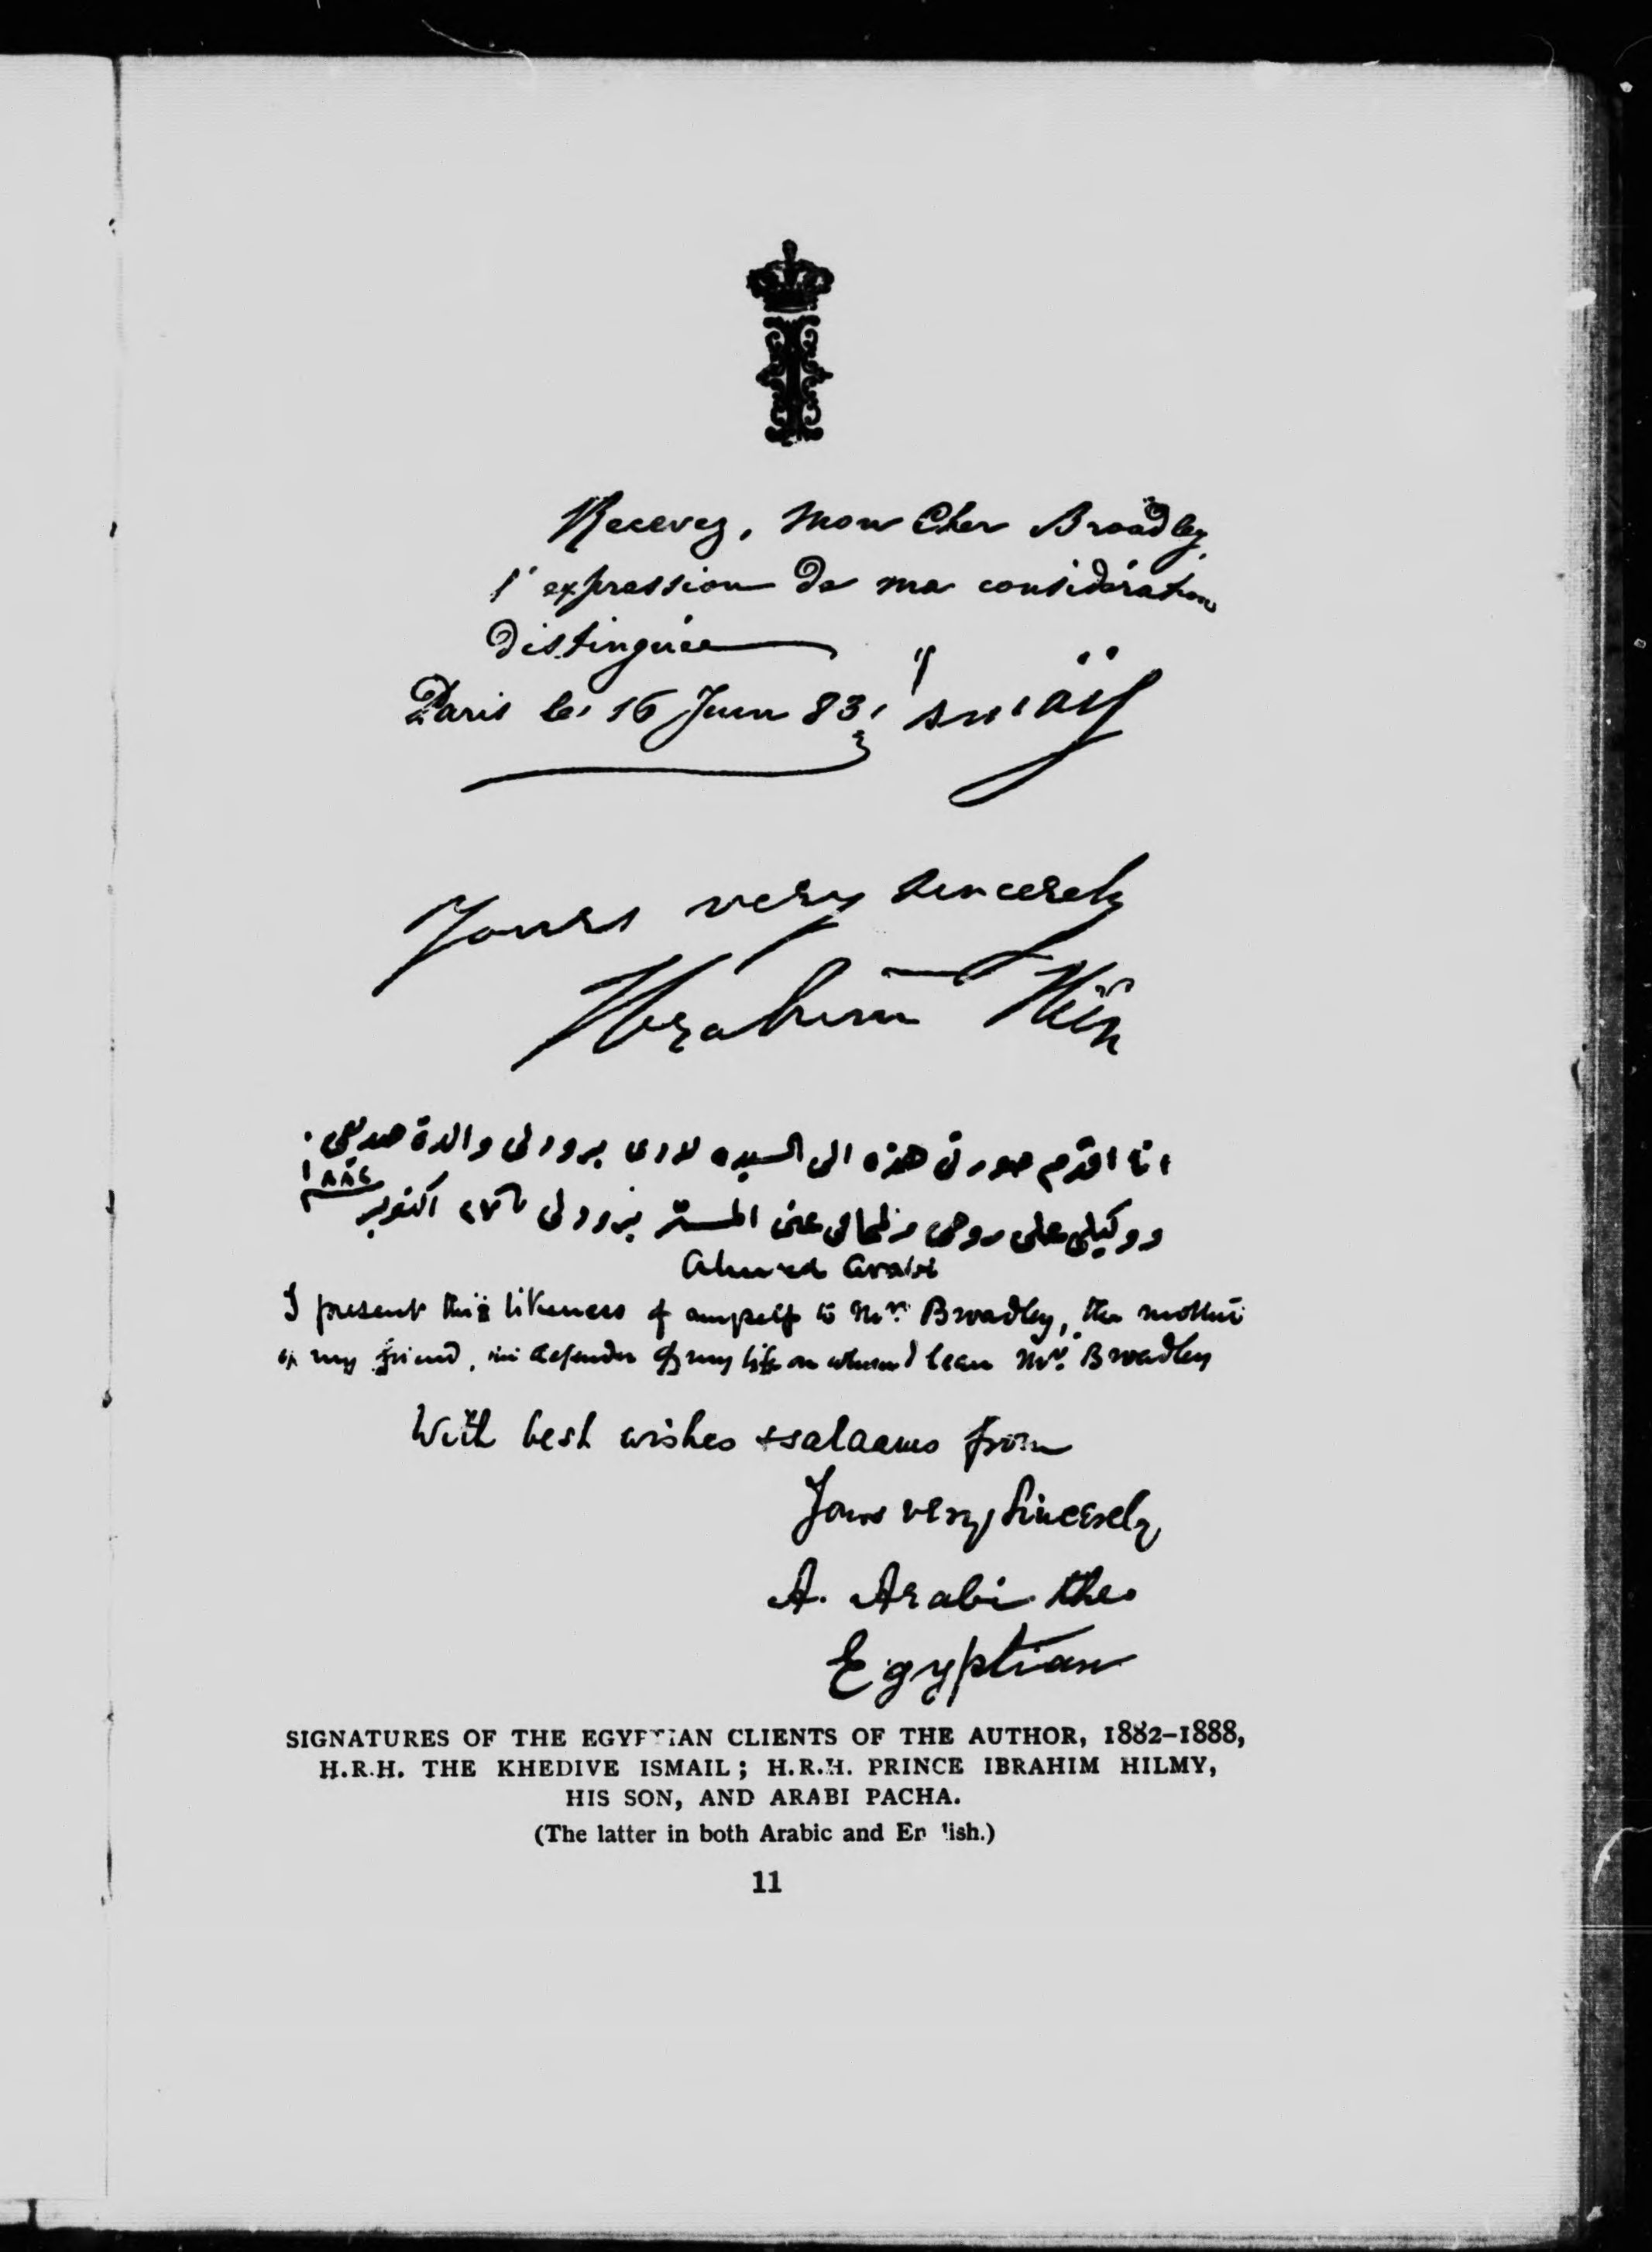 Recevez, Mon Cher Broadley,
l'expression de ma considération
distinguée
Paris le 16 Juin 83, Ismaïl
Yours very sincerely
Ibrahim Hilmy
انا اقدم صورتى هذه الى السيده لادى برودلى والدة صديقى
ووكيلى على روحى عنى المستر برودلى اكتوبر
١٨٨٤
Ahmed Arabi
I present this likeness of myself to Mrs. Broadley, the mother
of my friend, the defender of my life on whom I lean Mr. Broadley
With best wishes & salaams from
Yours very sincerely
A. Arabi the
Egyptian
SIGNATURES OF THE EGYPTIAN CLIENTS OF THE AUTHOR, 1882–1888,
H.R.H. THE KHEDIVE ISMAIL; H.R.H. PRINCE IBRAHIM HILMY,
HIS SON, AND ARABI PACHA.
(The latter in both Arabic and English.)
11